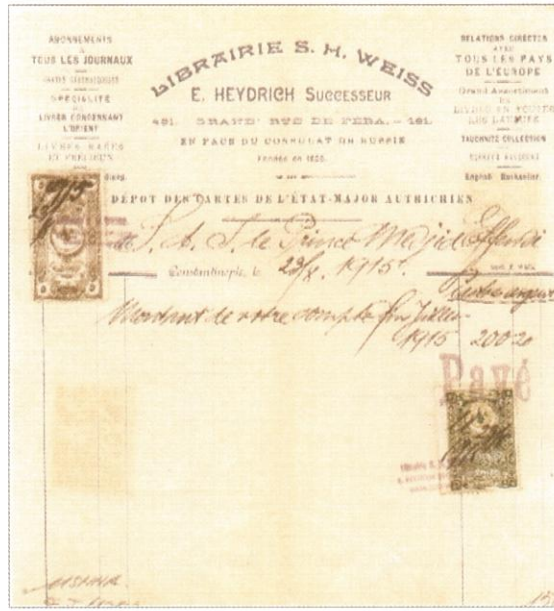 ABONNEMENTS
À
TOUS LES JOURNAUX
SPÉCIALITÉ
DE
LIVRES CONCERNANT
L'ORIENT
LIVRES RARES
ET PRÉCIEUX
LIBRAIRIE S. H. WEISS
E. HEYDRICH SUCCESSEUR
491. GRAND' RUE DE PÉRA. - 491.
EN FACE DU CONSULAT DE RUSSIE
RELATIONS DIRECTES
AVEC
TOUS LES PAYS
DE L'EUROPE
Grand Assortiment
DE
LIVRES EN TOUTES
LES LANGUES
TAUCHNITZ COLLECTION
English Bookseller.
DÉPÔT DES CARTES DE L'ÉTAT-MAJOR AUTRICHIEN
S. A. I. le Prince Medjid Effendi
Constantinople, le 29/X. 1915.
Montant de votre compte fin Juillet
1915 200 20
Payé